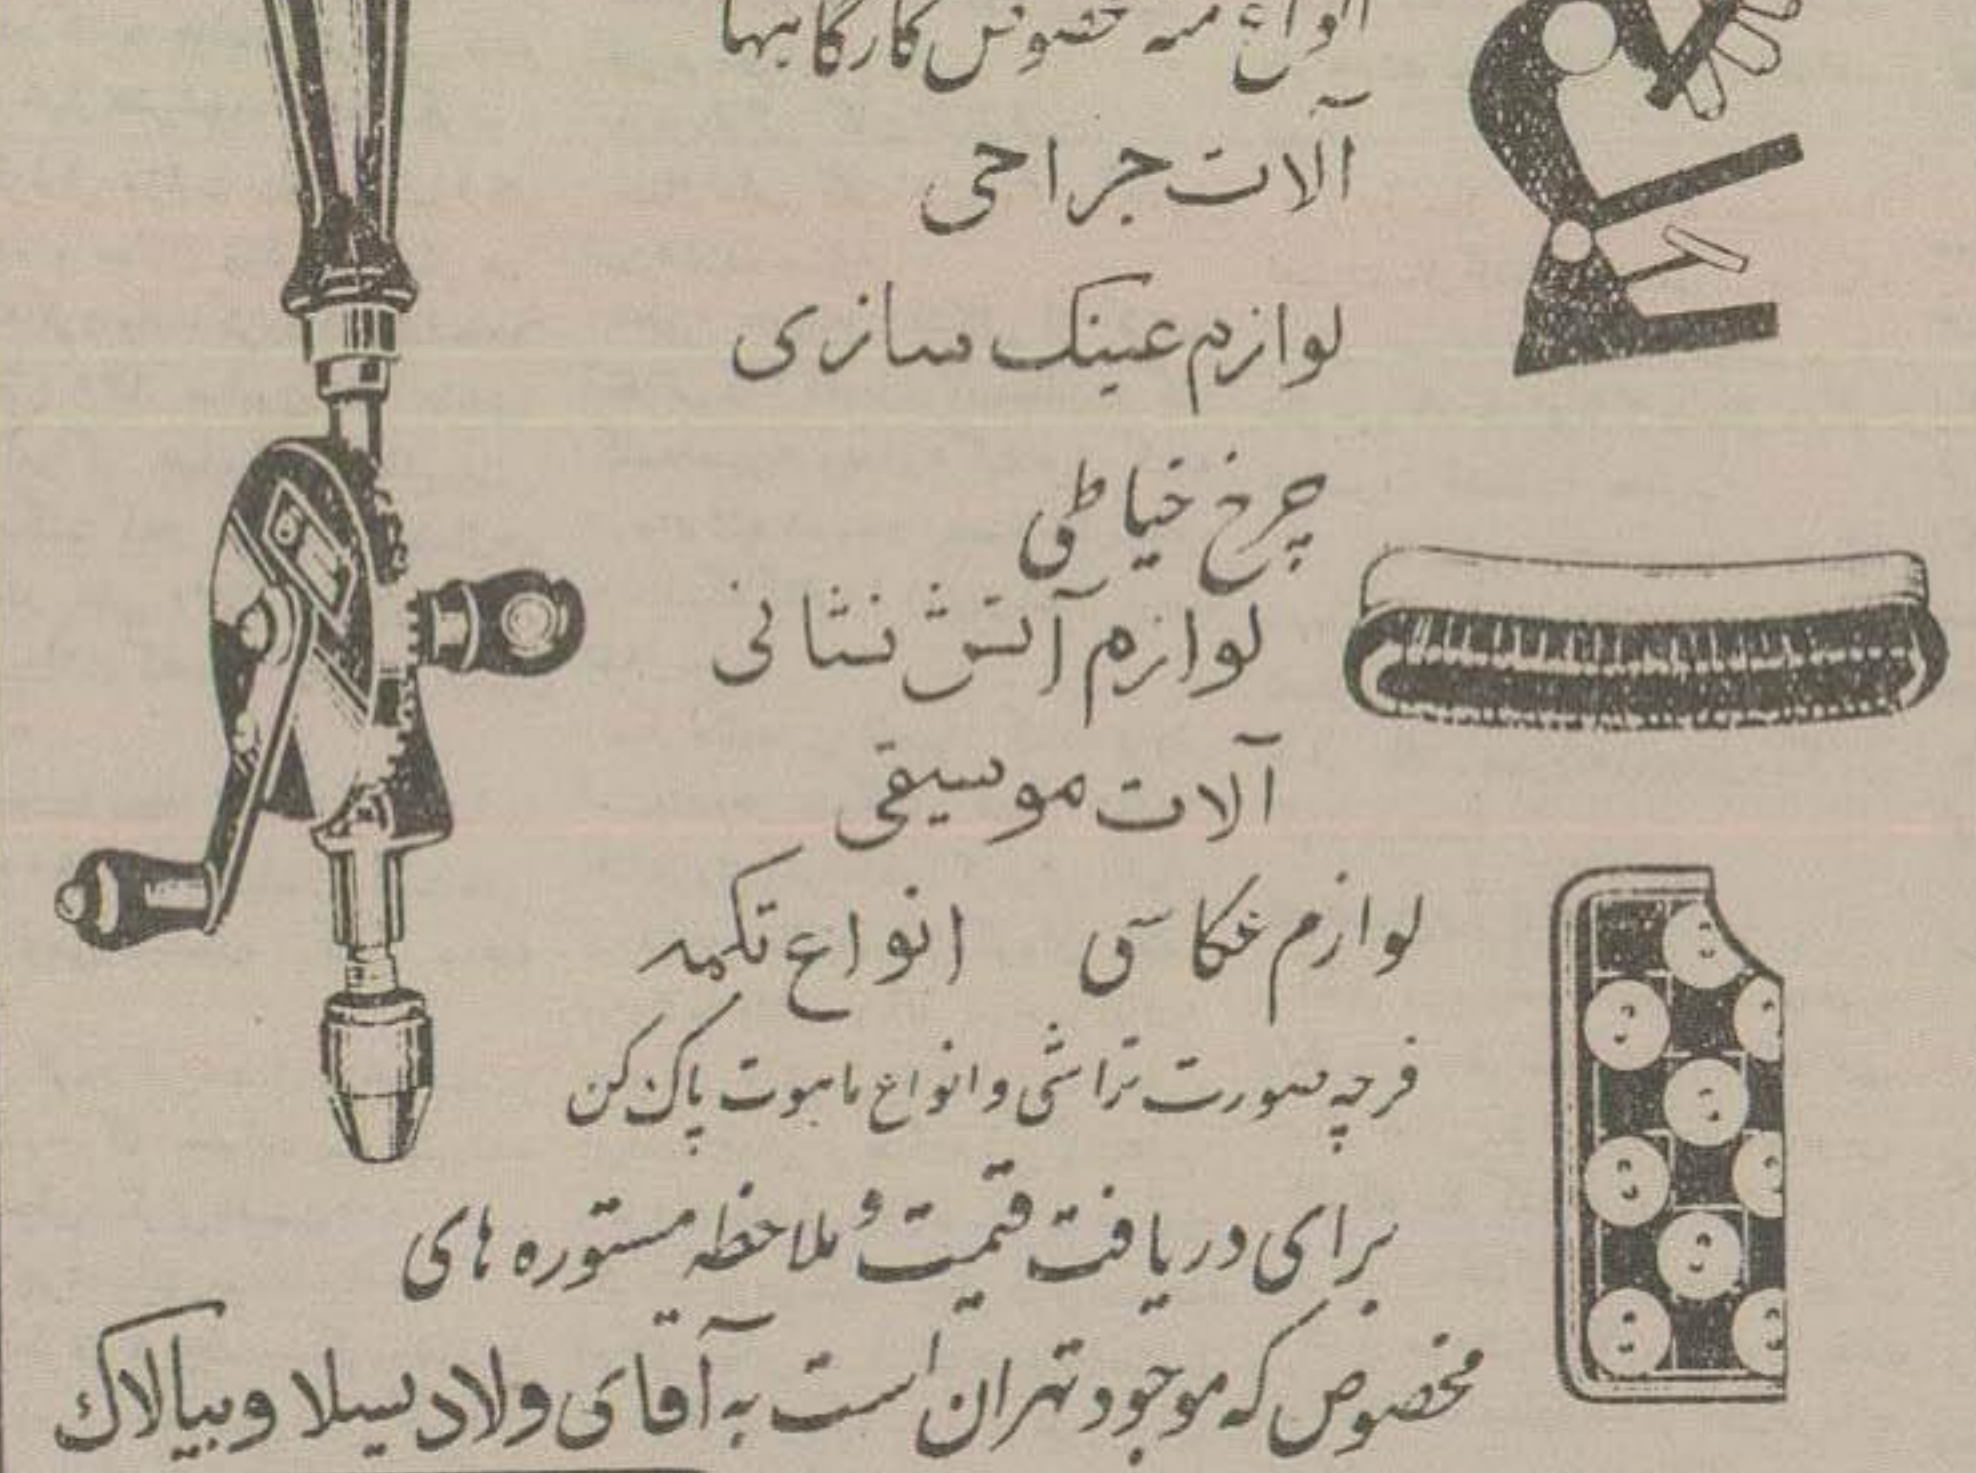 انواع مته مخصوص کارگاهها
آلات جراحی
لوازم عینک سازی
چرخ خیاطی
لوازم آتش نشانی
آلات موسیقی
لوازم عکاسی انواع تکمه
فرچه صورت تراشی و انواع ماهوت پاک کن
برای دریافت قیمت و ملاحظه مستوره های
مخصوص که موجود تهران است به آقای ولادیسلا و بیالاک